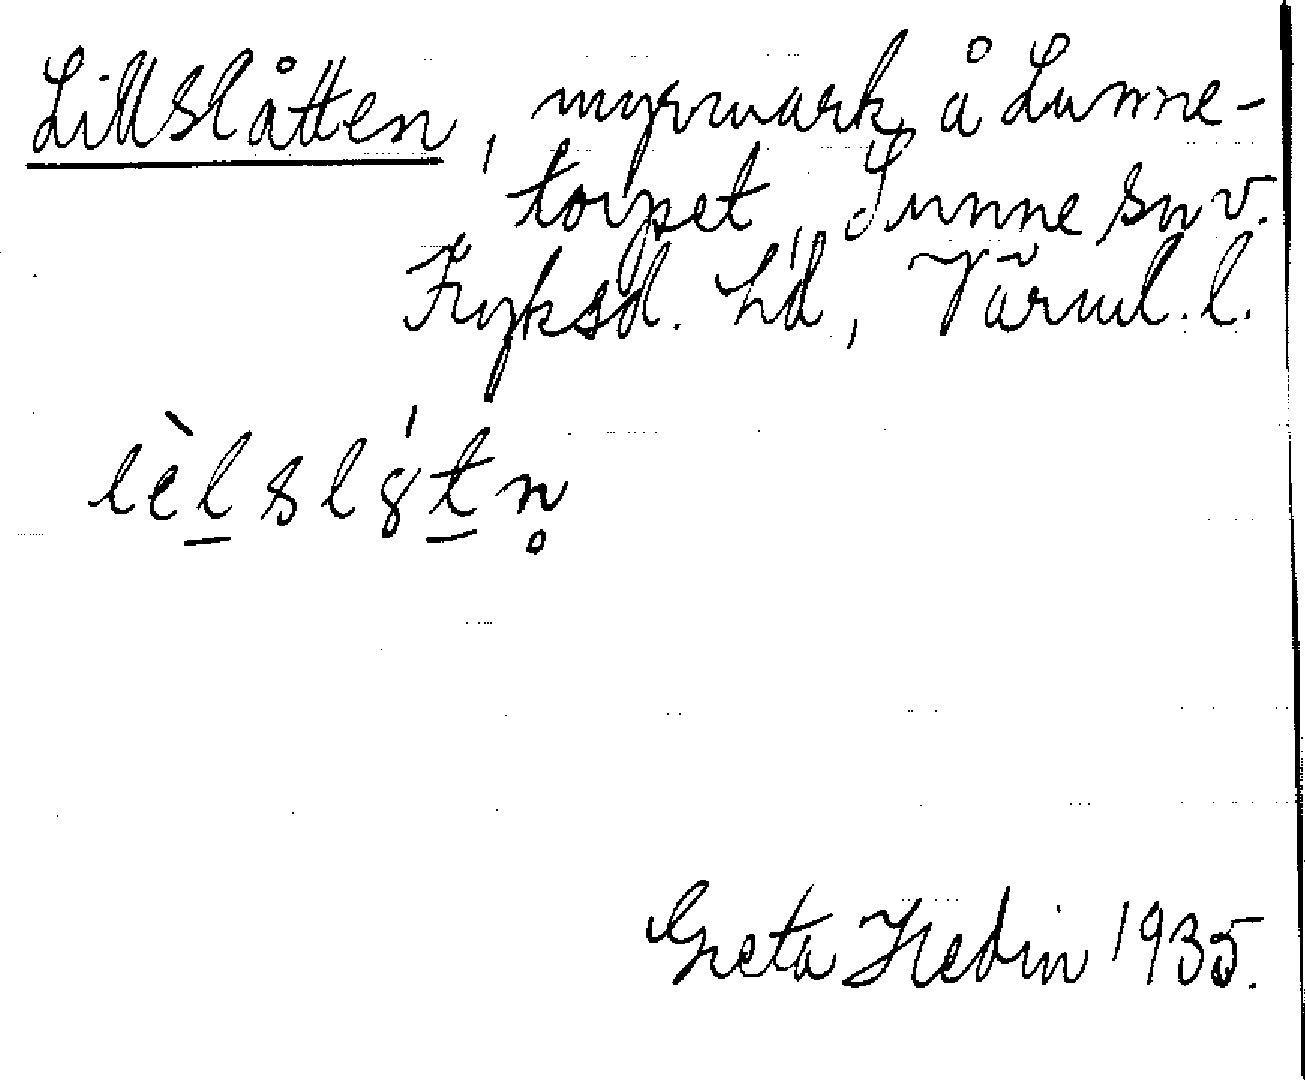 Lillslåtten, myrmark å Lunne-
torpet, Sunne sn v.
Fryksd. hd, Värml. l.
lèl̠slǵt̠n̥
Greta Hedin 1935.